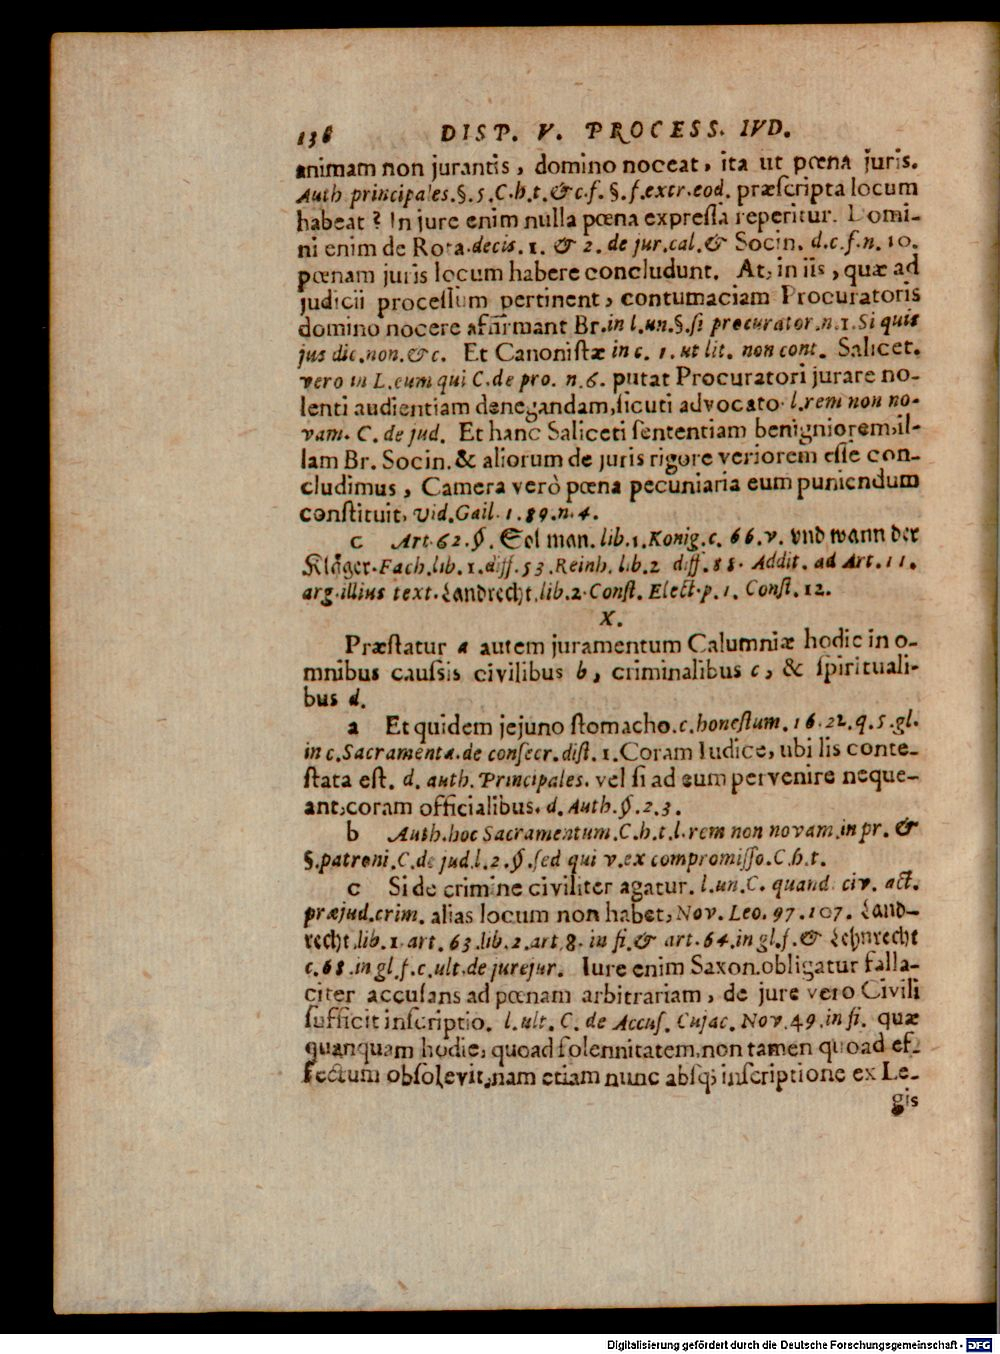 136 DISP. V. PROCESS. IVD.
animam non jurantis, domino noceat, ita ut pœna juris.
Auth principales.§.5.C.h.t.&c.f.§.f.extr.eod. præſcripta locum
habeat? In jure enim nulla pœna expreſſa reperitur. Domi-
ni enim de Rota.decis.1. & 2. de jur.cal.& Socin. d.c.f.n.10.
pœnam juris locum habere concludunt. At, in iis, quæ ad
judicii proceſſum pertinent, contumaciam Procuratoris
domino nocere affirmant Br.in l.un.§.ſi procurator.n.1.Si quis
jus dic.non.&c. Et Canoniſtæ in c. 1. ut lit. non cont. Salicet.
vero in L.eum qui C.de pro. n.6. putat Procuratori jurare no-
lenti audientiam denegandam, ſicuti advocato. l.rem non no-
vam. C. de jud. Et hanc Saliceti ſententiam benigniorem, il-
lam Br. Socin. & aliorum de juris rigore veriorem eſſe con-
cludimus, Camera verò pœna pecuniaria eum puniendum
conſtituit, vid.Gail. 1.89.n.4.
c Art.62.§. Sol man. lib.1.Konig.c. 66.v. vnd wann der
Kläger.Fach.lib.1.diff.53.Reinh.lib.2 diff.88. Addit. ad Art.11.
arg.illius text.Landrecht.lib.2.Conſt. Elect.p.1. Conſt.12.
X.
Præſtatur a autem juramentum Calumniæ hodie in o-
mnibus cauſsis civilibus b, criminalibus c, & ſpirituali-
bus d.
a Et quidem jejuno ſtomacho.c.honeſtum.16.22.q.5.gl.
in c.Sacramenta.de conſecr.diſt.1.Coram Iudice, ubi lis conte-
ſtata eſt. d. auth. Principales. vel ſi ad eum pervenire neque-
ant, coram officialibus. d. Auth.§.2.3.
b Auth.hoc Sacramentum.C.h.t.l.rem non novam.in pr. &
§.patroni.C.de jud.l.2.§.ſed qui v.ex compromiſſo.C.h.t.
c Si de crimine civiliter agatur. l.un.C. quand. civ. act.
præjud.crim. alias locum non habet, Nov. Leo. 97.107. Land-
recht.lib.1.art.63.lib.2.art.8. in fi.& art.64.in gl.f.& Lehnrecht
c.68.in gl.f.c.ult.de jurejur. Iure enim Saxon.obligatur falla-
citer accuſans ad pœnam arbitrariam, de jure vero Civili
ſufficit inſcriptio. l.ult. C. de Accuſ. Cujac. Nov.49.in fi. quæ
quanquam hodie, quoad ſolennitatem, non tamen quoad ef-
fectum obſolevit, nam etiam nunc abſq; inſcriptione ex Le-
gis
Digitalisierung gefördert durch die Deutsche Forschungsgemeinschaft - DFG